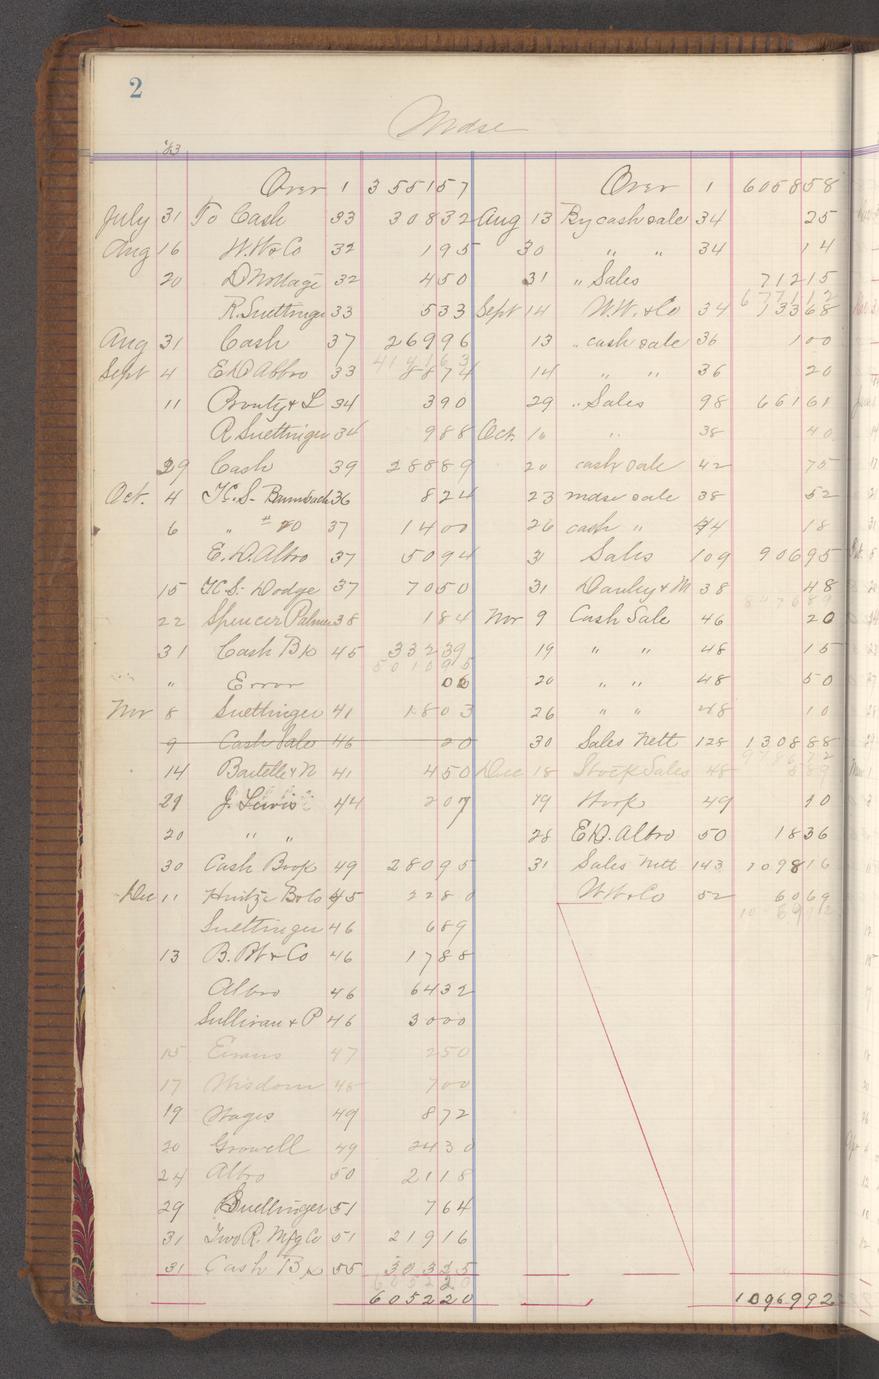 2
Mdse
'83
Over 1 3 551 57 Over 1 6058 58
July 31 To Cash 33 308 32 Aug 13 By cash sale 34 25
Aug 16 W.W & Co 32 1 95 30 " " 34 14
20 D Nottage 32 4 50 31 " Sales 712 15
6771 12
R. Suettinger 33 5 33 Sept 14 W.W. & Co 34 133 68
Aug 31 Cash 37 269 96 13 " cash sale 36 1 00
4141 63
Sept 4 E D Albro 33 88 74 14 " " 36 20
11 Prouty & L 34 3 90 29 " Sales 98 661 61
R Suettinger 34 9 88 Oct. 10 " 38 40
29 Cash 39 288 89 20 cash sale 42 75
Oct. 4 H.S. 36 8 24 23 mdse sale 38 52
6 " " 20 37 14 00 26 cash " 44 18
E. D. Albro 37 50 94 31 Sales 109 906 95
15 H S. Dodge 37 70 50 31 Danley & M 38 48
8476 89
22 Spencer Palmer 38 1 84 Nov 9 Cash Sale 46 20
31 Cash Bk 45 332 39 19 " " 48 15
5010 95
" Error 06 20 " " 48 50
Nov 8 Suettinger 41 18 03 26 " " 48 10
9 Cash Sale 46 20 30 Sales Nett 128 1308 88
9786 72
14 Bartelle & N 41 4 50 Dec 18 Stock Sales 48 5 89
29 J. Lewis 44 2 07 19 49 10
20 " " 28 E D. Albro 50 18 36
30 Cash Book 49 280 95 31 Sales Nett 143 1098 16
Dec 11 45 22 80 W W & Co 52 60 69
Suettinger 46 6 89
13 B. W & Co 46 17 88
Albro 46 64 32
Sullivan & P 46 30 00
15 Evans 47 2 50
17 Wisdom 48 7 00
19 Wages 49 8 72
20 Growell 49 24 30
24 Albro 50 21 18
29 Suettinger 51 7 64
31 Two R. Mfg Co 51 219 16
31 Cash Bk 55 303 25
6052 20
6052 20 10969 92